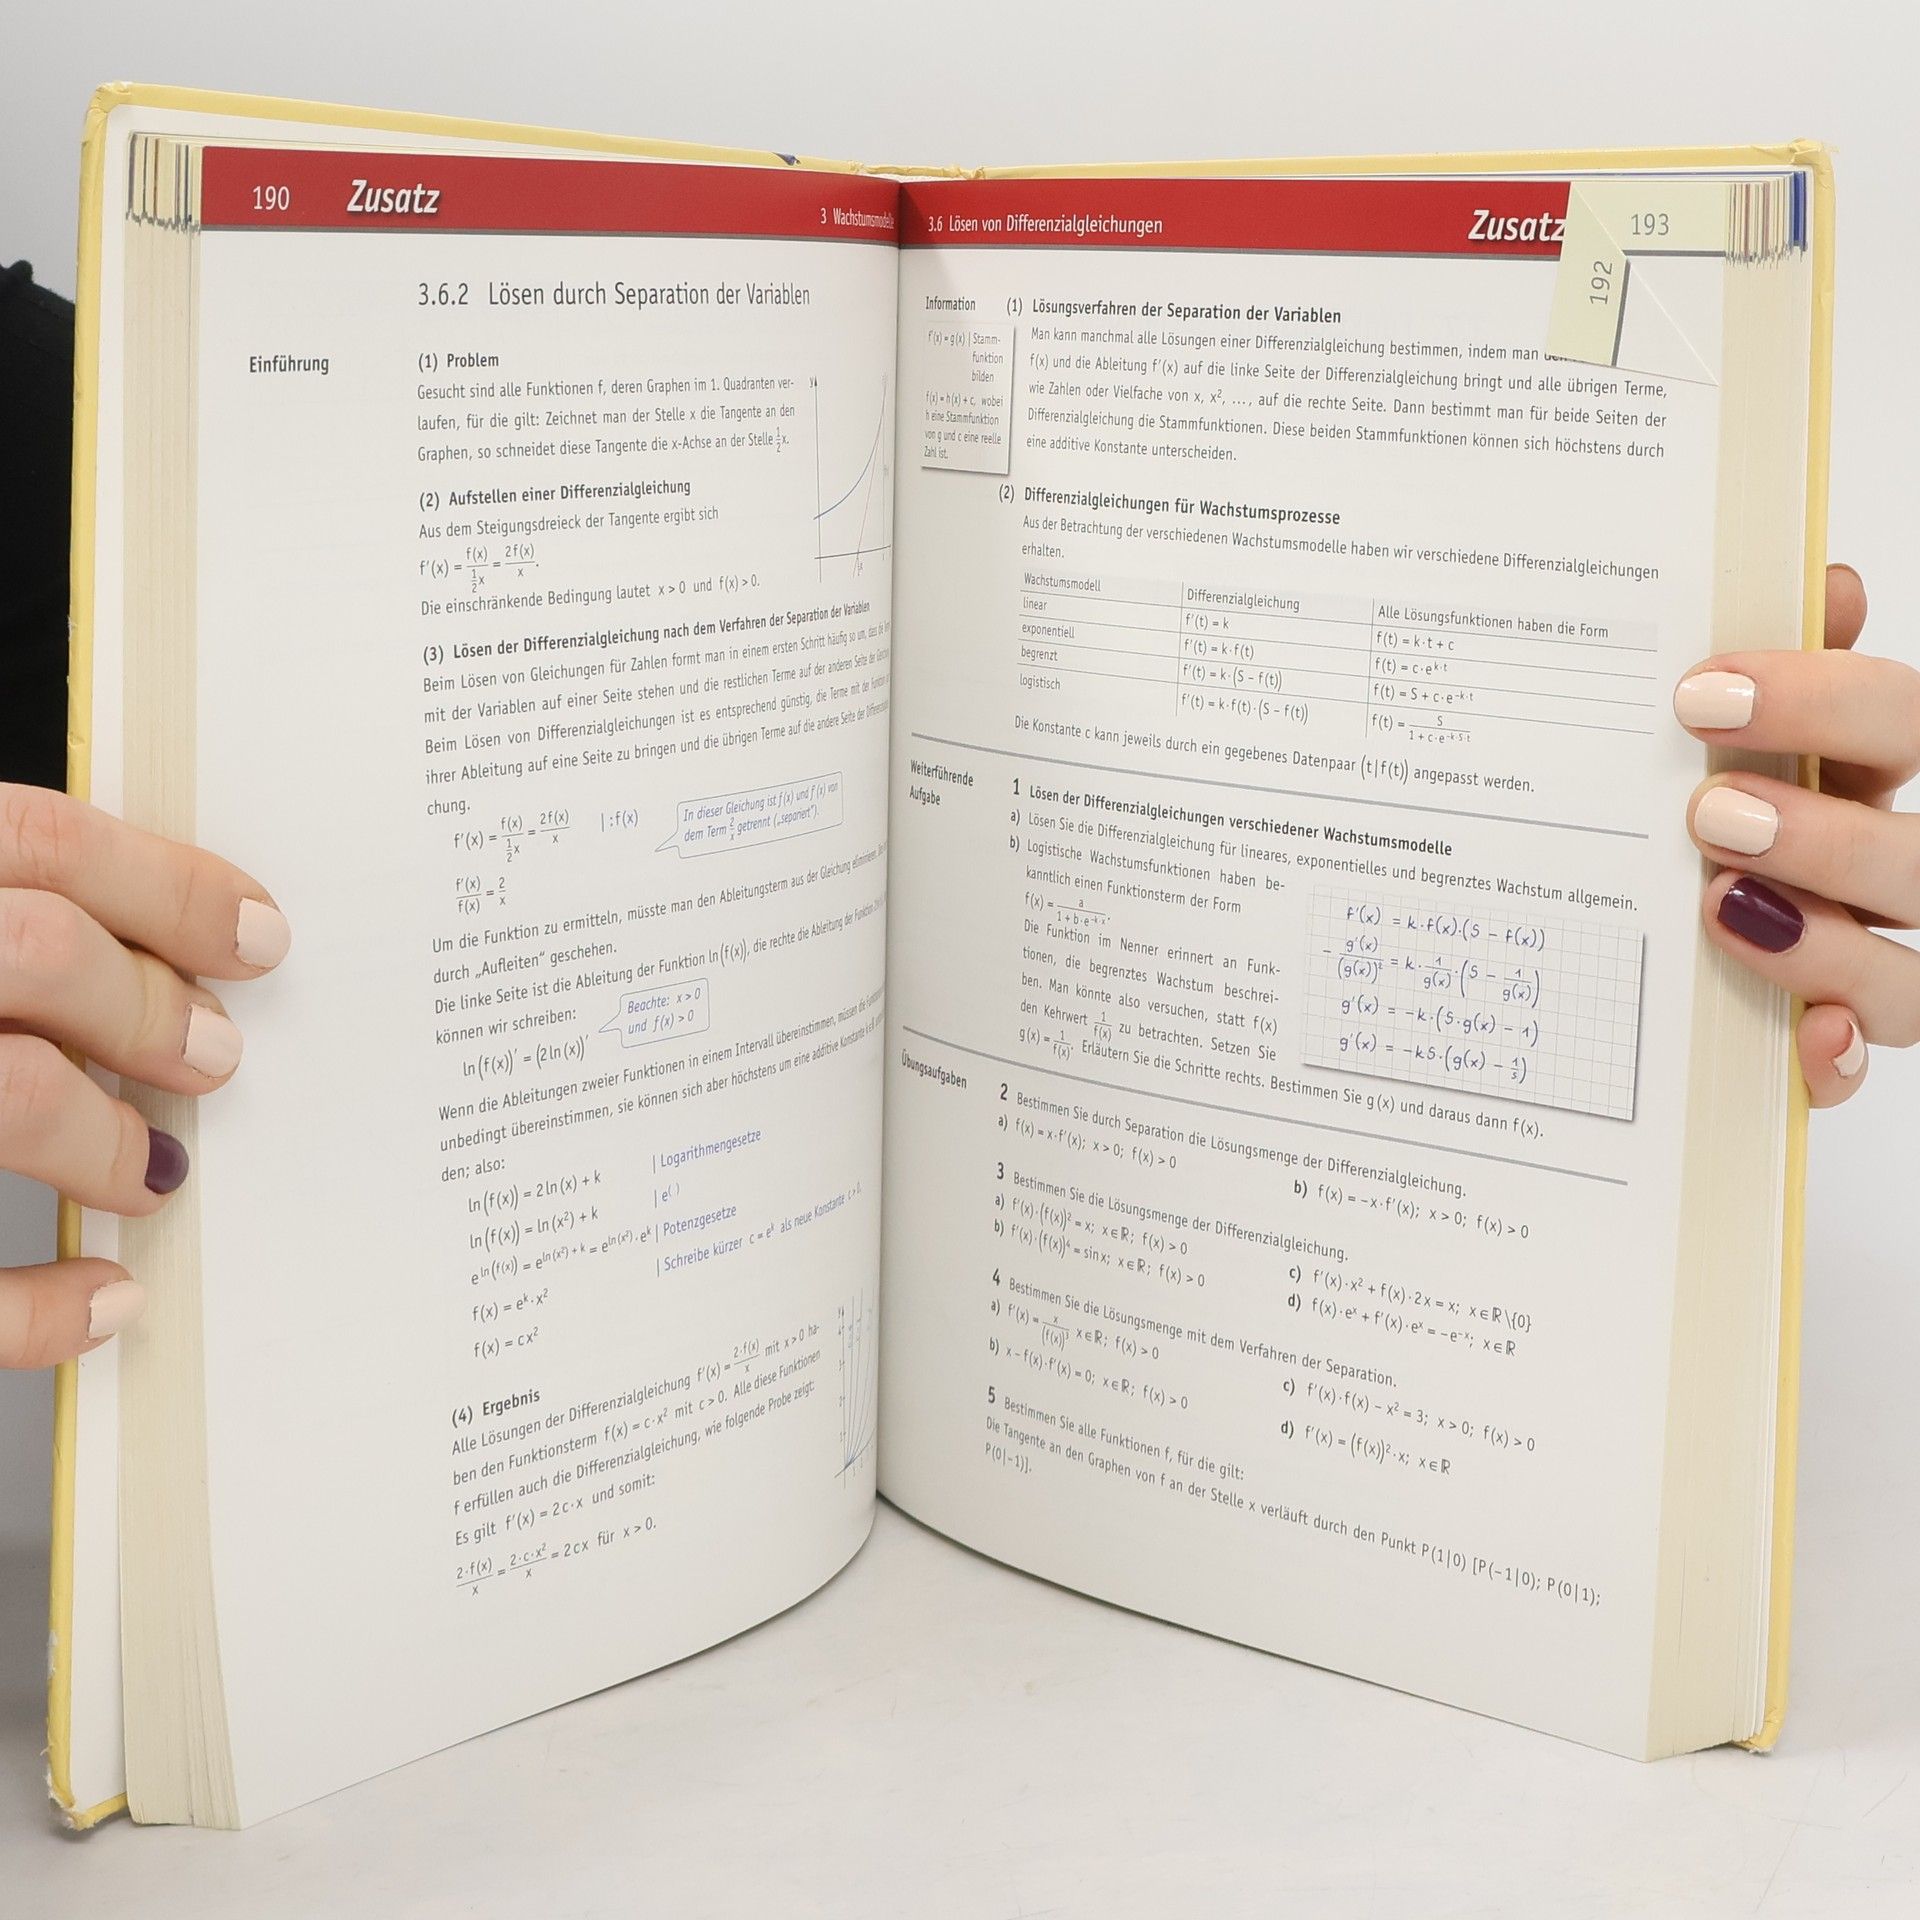 190 Zusatz 3 Wachstumsmodelle
3.6.2 Lösen durch Separation der Variablen
Einführung
(1) Problem
Gesucht sind alle Funktionen f, deren Graphen im 1. Quadranten ver-
laufen, für die gilt: Zeichnet man der Stelle x die Tangente an den
Graphen, so schneidet diese Tangente die x-Achse an der Stelle ½x.
(2) Aufstellen einer Differenzialgleichung
Aus dem Steigungsdreieck der Tangente ergibt sich
f'(x) = f(x)/(½x) = 2f(x)/x.
Die einschränkende Bedingung lautet x > 0 und f(x) > 0.
(3) Lösen der Differenzialgleichung nach dem Verfahren der Separation der Variablen
Beim Lösen von Gleichungen für Zahlen formt man in einem ersten Schritt häufig so um, dass die
mit der Variablen auf einer Seite stehen und die restlichen Terme auf der anderen Seite der
Beim Lösen von Differenzialgleichungen ist es entsprechend günstig, die Terme mit der Funktion
ihrer Ableitung auf eine Seite zu bringen und die übrigen Terme auf die andere Seite der
chung.
f'(x) = f(x)/(½x) = 2f(x)/x | :f(x)
In dieser Gleichung ist f(x) und f'(x) von
dem Term 2/x getrennt („separiert").
f'(x)/f(x) = 2/x
Um die Funktion zu ermitteln, müsste man den Ableitungsterm aus der Gleichung eliminieren.
durch „Aufleiten" geschehen.
Die linke Seite ist die Ableitung der Funktion ln(f(x)), die rechte die Ableitung der Funktion
können wir schreiben:
Beachte: x > 0
und f(x) > 0
ln(f(x))' = (2 ln(x))'
Wenn die Ableitungen zweier Funktionen in einem Intervall übereinstimmen, müssen die
unbedingt übereinstimmen, sie können sich aber höchstens um eine additive Konstante k∈ℝ
den; also:
ln(f(x)) = 2 ln(x) + k | Logarithmengesetze
ln(f(x)) = ln(x²) + k | e^( )
e^(ln(f(x))) = e^(ln(x²) + k) = e^(ln(x²)) · e^k | Potenzgesetze
f(x) = e^k · x² | Schreibe kürzer c = e^k als neue Konstante c > 0.
f(x) = cx²
(4) Ergebnis
Alle Lösungen der Differenzialgleichung f'(x) = 2·f(x)/x mit x > 0 ha-
ben den Funktionsterm f(x) = c·x² mit c > 0. Alle diese Funktionen
f erfüllen auch die Differenzialgleichung, wie folgende Probe zeigt:
Es gilt f'(x) = 2c·x und somit:
2·f(x)/x = 2·c·x²/x = 2cx für x > 0.
3.6 Lösen von Differenzialgleichungen Zusatz 193
192
Information
(1) Lösungsverfahren der Separation der Variablen
f'(x) = g(x) | Stamm-
funktion
bilden
f(x) = h(x) + c, wobei
h eine Stammfunktion
von g und c eine reelle
Zahl ist.
Man kann manchmal alle Lösungen einer Differenzialgleichung bestimmen, indem man
f(x) und die Ableitung f'(x) auf die linke Seite der Differenzialgleichung bringt und alle übrigen Terme,
wie Zahlen oder Vielfache von x, x², ..., auf die rechte Seite. Dann bestimmt man für beide Seiten der
Differenzialgleichung die Stammfunktionen. Diese beiden Stammfunktionen können sich höchstens durch
eine additive Konstante unterscheiden.
(2) Differenzialgleichungen für Wachstumsprozesse
Aus der Betrachtung der verschiedenen Wachstumsmodelle haben wir verschiedene Differenzialgleichungen
erhalten.
Wachstumsmodell Differenzialgleichung Alle Lösungsfunktionen haben die Form
linear f'(t) = k f(t) = k·t + c
exponentiell f'(t) = k·f(t) f(t) = c·e^(k·t)
begrenzt f'(t) = k·(S − f(t)) f(t) = S + c·e^(−k·t)
logistisch f'(t) = k·f(t)·(S − f(t)) f(t) = S/(1 + c·e^(−k·S·t))
Die Konstante c kann jeweils durch ein gegebenes Datenpaar (t|f(t)) angepasst werden.
Weiterführende
Aufgabe
1 Lösen der Differenzialgleichungen verschiedener Wachstumsmodelle
a) Lösen Sie die Differenzialgleichung für lineares, exponentielles und begrenztes Wachstum allgemein.
b) Logistische Wachstumsfunktionen haben be-
kanntlich einen Funktionsterm der Form
f(x) = a/(1 + b·e^(−k·x)).
Die Funktion im Nenner erinnert an Funk-
tionen, die begrenztes Wachstum beschrei-
ben. Man könnte also versuchen, statt f(x)
den Kehrwert 1/f(x) zu betrachten. Setzen Sie
g(x) = 1/f(x). Erläutern Sie die Schritte rechts. Bestimmen Sie g(x) und daraus dann f(x).
f'(x) = k·f(x)·(S − f(x))
−g'(x)/(g(x))² = k·1/g(x)·(S − 1/g(x))
g'(x) = −k·(S·g(x) − 1)
g'(x) = −kS·(g(x) − 1/S)
Übungsaufgaben
2 Bestimmen Sie durch Separation die Lösungsmenge der Differenzialgleichung.
a) f(x) = x·f'(x); x > 0; f(x) > 0
b) f(x) = −x·f'(x); x > 0; f(x) > 0
3 Bestimmen Sie die Lösungsmenge der Differenzialgleichung.
a) f'(x)·(f(x))² = x; x∈ℝ; f(x) > 0
b) f'(x)·(f(x))⁴ = sin x; x∈ℝ; f(x) > 0
c) f'(x)·x² + f(x)·2x = x; x∈ℝ\{0}
d) f(x)·e^x + f'(x)·e^x = −e^(−x); x∈ℝ
4 Bestimmen Sie die Lösungsmenge mit dem Verfahren der Separation.
a) f'(x) = x/(f(x))³ x∈ℝ; f(x) > 0
b) x − f(x)·f'(x) = 0; x∈ℝ; f(x) > 0
c) f'(x)·f(x) − x² = 3; x > 0; f(x) > 0
d) f'(x) = (f(x))²·x; x∈ℝ
5 Bestimmen Sie alle Funktionen f, für die gilt:
Die Tangente an den Graphen von f an der Stelle x verläuft durch den Punkt P(1|0) [P(−1|0); P(0|1);
P(0|−1)].